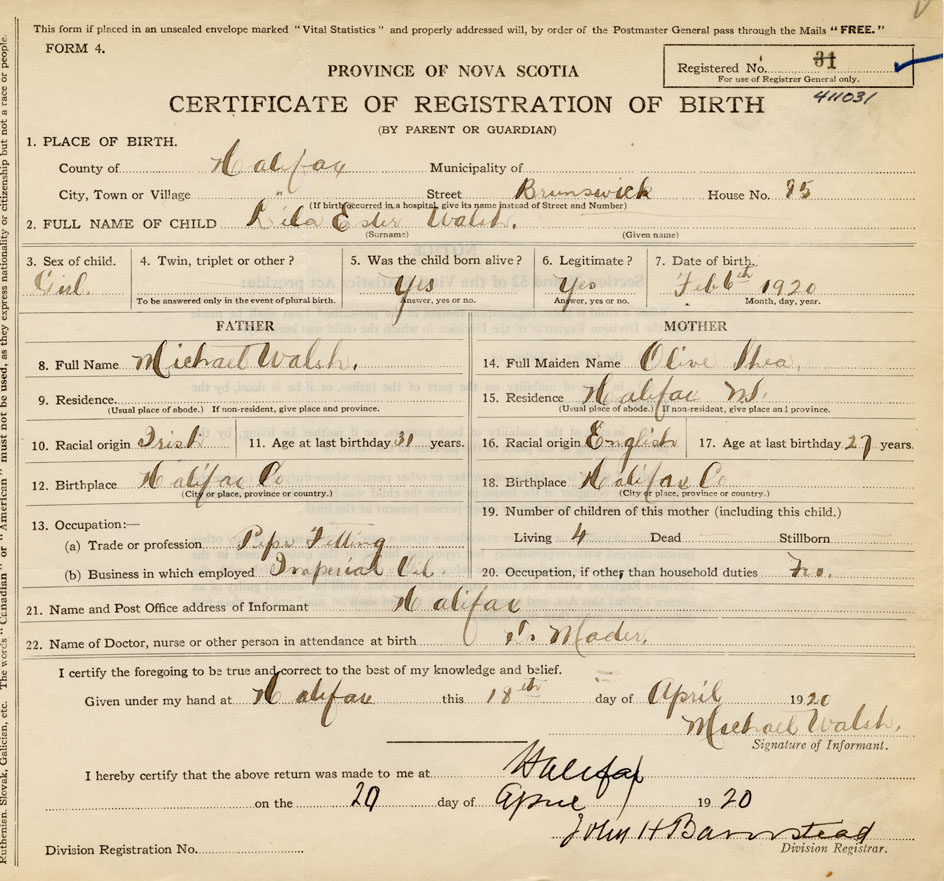 This form if placed in an unsealed envelope marked "Vital Statistics" and properly addressed will, by order of the Postmaster General pass through the Mails "FREE."
FORM 4.
Registered No. 31
For use of Registrar General only.
411031
PROVINCE OF NOVA SCOTIA
CERTIFICATE OF REGISTRATION OF BIRTH
(BY PARENT OR GUARDIAN)
1. PLACE OF BIRTH.
County of Halifax Municipality of
City, Town or Village " Street Brunswick House No. 85
(If birth occurred in a hospital, give its name instead of Street and Number)
2. FULL NAME OF CHILD Lila Ester Walsh.
(Surname) (Given name)
3. Sex of child. 4. Twin, triplet or other? 5. Was the child born alive? 6. Legitimate? 7. Date of birth.
Girl. Yes Yes Feb 6th 1920
To be answered only in the event of plural birth. Answer, yes or no. Answer, yes or no. Month, day, year.
FATHER MOTHER
8. Full Name Michael Walsh. 14. Full Maiden Name Olive Shea.
9. Residence. 15. Residence Halifax N.S.
(Usual place of abode.) If non-resident, give place and province. (Usual place of abode.) If non-resident, give place and province.
10. Racial origin Irish 11. Age at last birthday 31 years. 16. Racial origin English 17. Age at last birthday 27 years.
12. Birthplace Halifax Co 18. Birthplace Halifax Co
(City or place, province or country.) (City or place, province or country.)
13. Occupation:— 19. Number of children of this mother (including this child.)
(a) Trade or profession Pipe Fitting Living 4 Dead Stillborn
(b) Business in which employed Imperial Oil 20. Occupation, if other, than household duties no.
21. Name and Post Office address of Informant Halifax
22. Name of Doctor, nurse or other person in attendance at birth Dr Mader.
I certify the foregoing to be true and correct to the best of my knowledge and belief.
Given under my hand at Halifax this 18th day of April 1920
Michael Walsh.
Signature of Informant.
I hereby certify that the above return was made to me at Halifax
on the 20 day of April 1920
John H Barnstead
Division Registrar.
Division Registration No.
Ruthenian, Slovak, Galician, etc. The words "Canadian" or "American" must not be used, as they express nationality or citizenship but not a race or people.